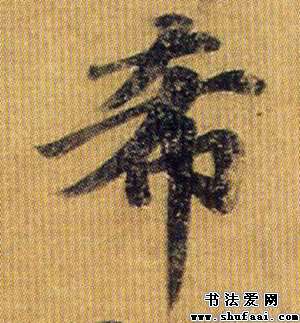 希
书法爱网
www.shufaai.com